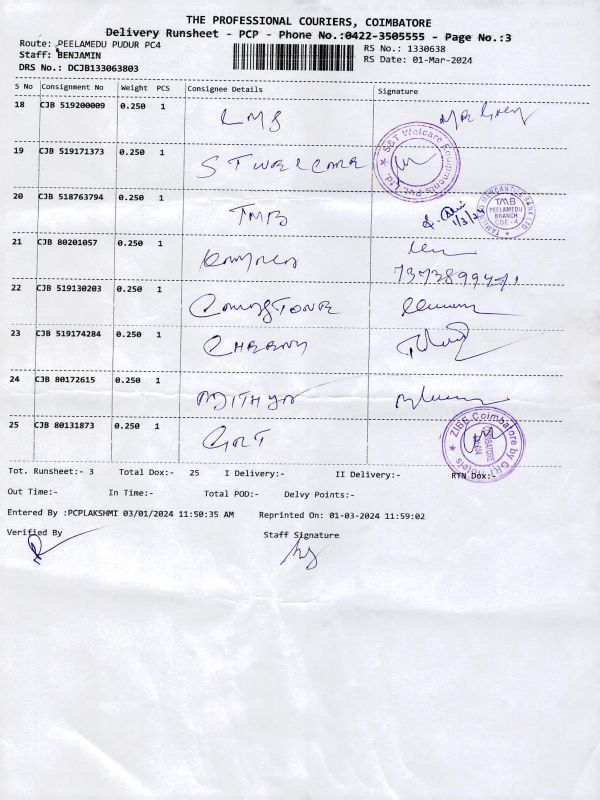 THE PROFESSIONAL COURIERS, COIMBATORE
Delivery Runsheet - PCP - Phone No.:0422-3505555 - Page No.:3
Route: PEELAMEDU PUDUR PC4
RS No.: 1330638
Staff: BENJAMIN
RS Date: 01-Mar-2024
DRS No.: DCJB133063803
S No Consignment No Weight PCS Consignee Details Signature
18 CJB 519200009 0.250 1 LMS
19 CJB 519171373 0.250 1 S T WELCARE
S&T Welcare Equipments Pvt. Ltd.
20 CJB 518763794 0.250 1 TMB
1/3/24
TAMILNAD MERCANTILE BANK LTD.
TMB
PEELAMEDU
BRANCH
CBE - 4
21 CJB 80201057 0.250 1
22 CJB 519130203 0.250 1
23 CJB 519174284 0.250 1 CHERNY
24 CJB 80172615 0.250 1 ADITHYA
25 CJB 80131873 0.250 1 GRT
ZIBE Coimbatore by GRT Hotels
Tot. Runsheet:- 3 Total Dox:- 25 I Delivery:- II Delivery:- RTN Dox:
Out Time:- In Time:- Total POD:- Delvy Points:-
Entered By :PCPLAKSHMI 03/01/2024 11:50:35 AM Reprinted On: 01-03-2024 11:59:02
Verified By Staff Signature